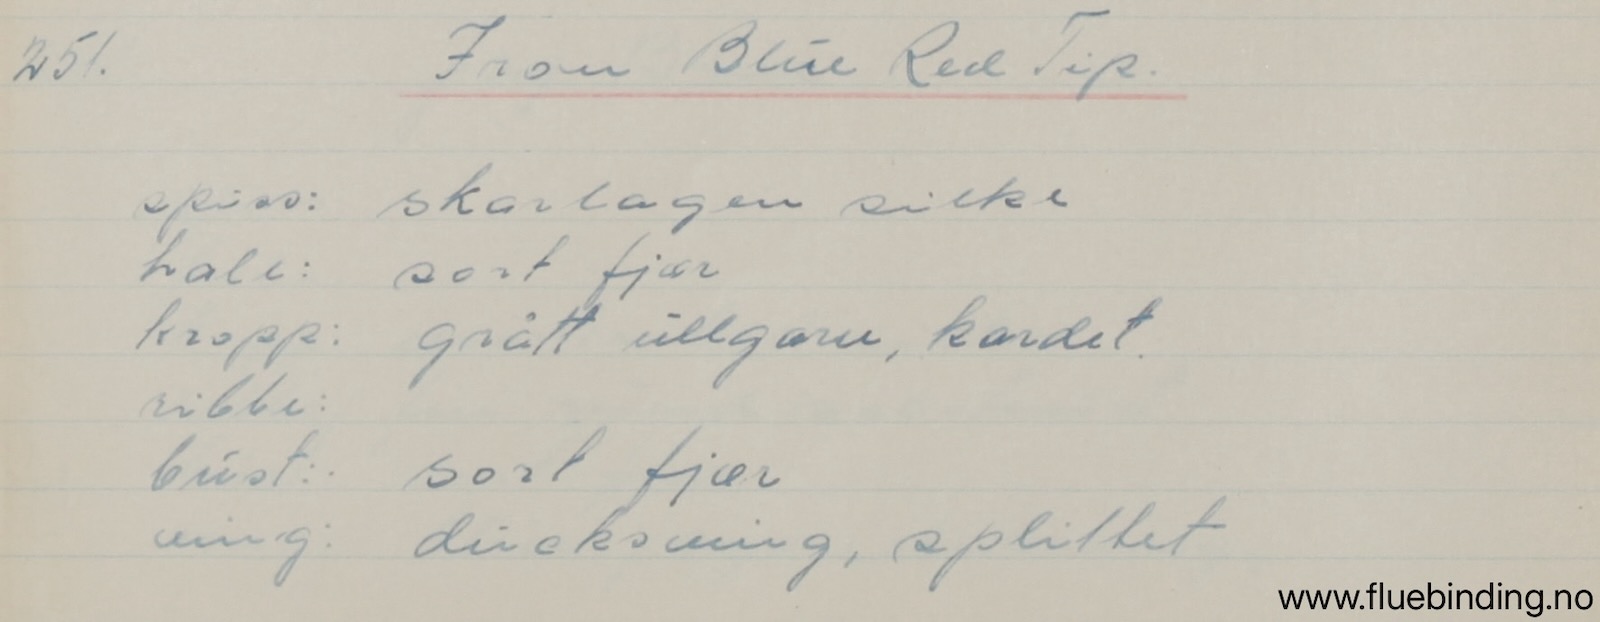 251. Iron Blue Red Tip.
spiss: skarlagen silke
hale: sort fjær
kropp: grått ullgarn, kardet.
ribbe:
bust: sort fjær
ving: duckswing, splittet
www.fluebinding.no